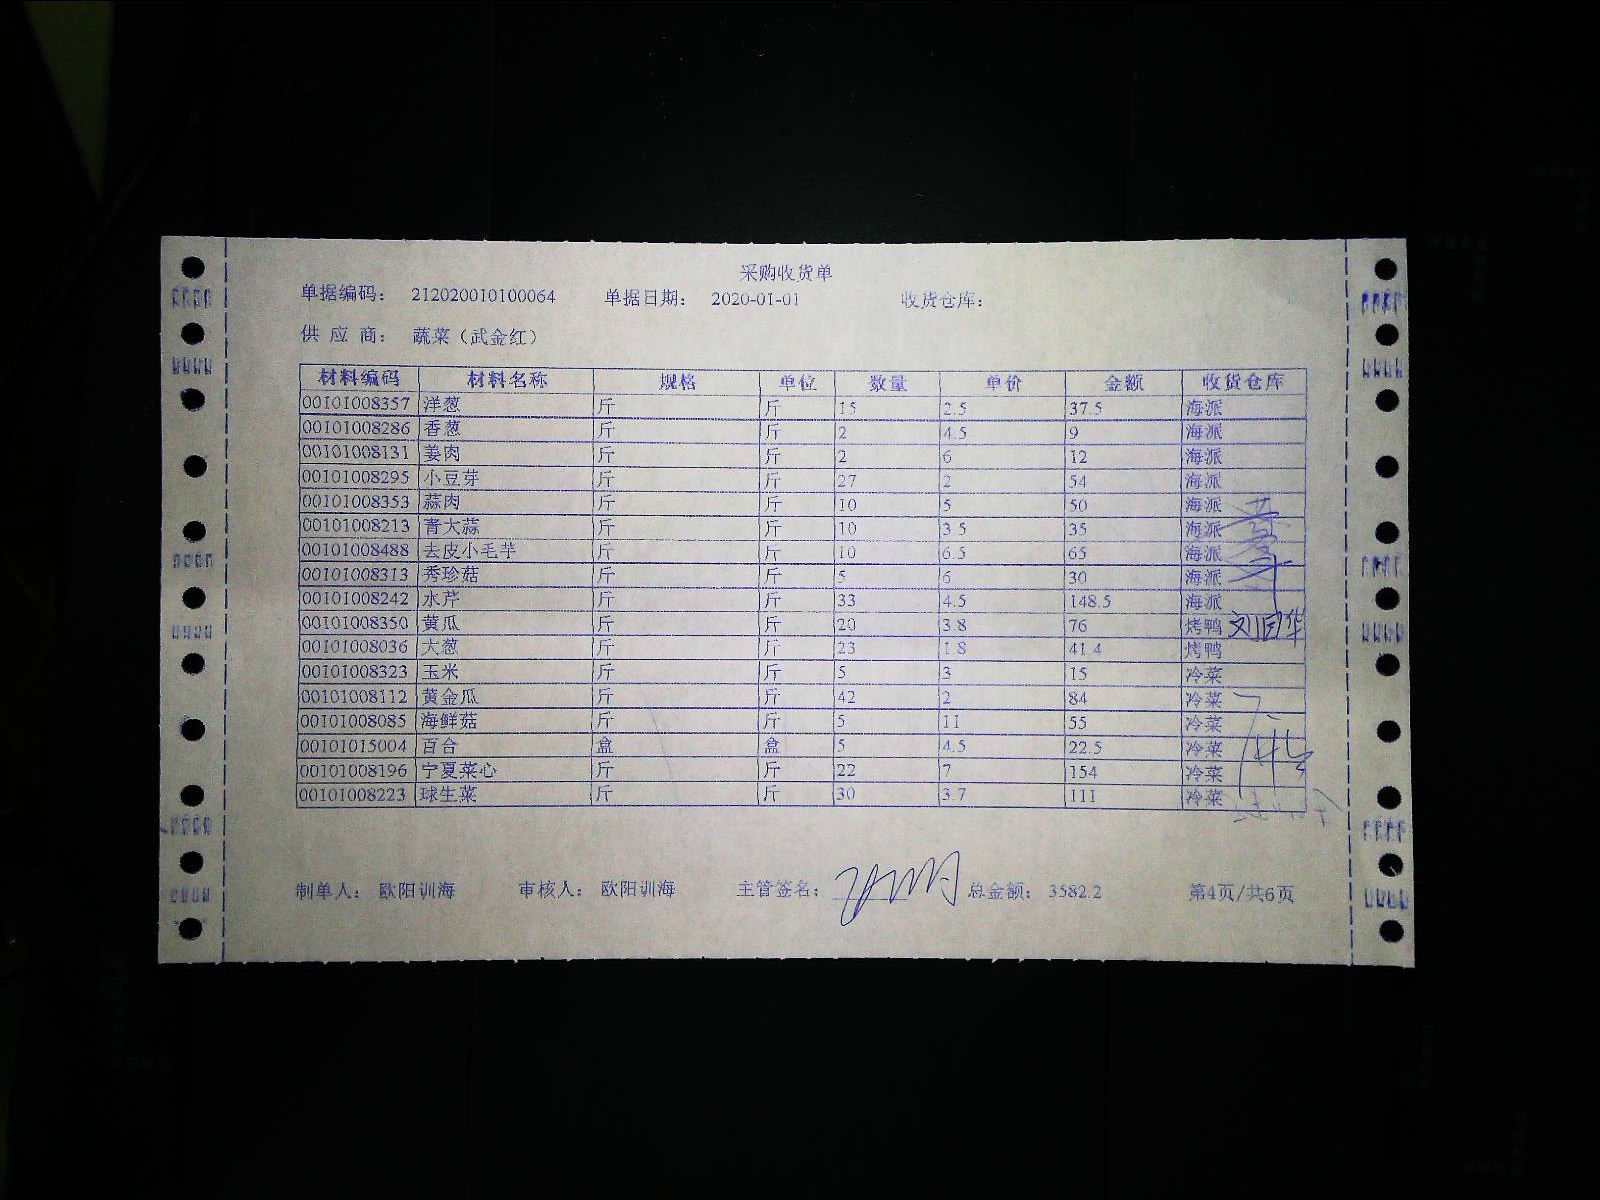 采购收货单
单据编码： 212020010100064 单据日期： 2020-01-01 收货仓库：
供 应 商： 蔬菜（武金红）
材料编码 材料名称 规格 单位 数量 单价 金额 收货仓库
00101008357 洋葱 斤 斤 15 2.5 37.5 海派
00101008286 香葱 斤 斤 2 4.5 9 海派
00101008131 姜肉 斤 斤 2 6 12 海派
00101008295 小豆芽 斤 斤 27 2 54 海派
00101008353 蒜肉 斤 斤 10 5 50 海派
00101008213 青大蒜 斤 斤 10 3.5 35 海派
00101008488 去皮小毛芋 斤 斤 10 6.5 65 海派
00101008313 秀珍菇 斤 斤 5 6 30 海派
00101008242 水芹 斤 斤 33 4.5 148.5 海派
00101008350 黄瓜 斤 斤 20 3.8 76 烤鸭
00101008036 大葱 斤 斤 23 1.8 41.4 烤鸭
00101008323 玉米 斤 斤 5 3 15 冷菜
00101008112 黄金瓜 斤 斤 42 2 84 冷菜
00101008085 海鲜菇 斤 斤 5 11 55 冷菜
00101015004 百合 盒 盒 5 4.5 22.5 冷菜
00101008196 宁夏菜心 斤 斤 22 7 154 冷菜
00101008223 球生菜 斤 斤 30 3.7 111 冷菜
制单人： 欧阳训海 审核人： 欧阳训海 主管签名： 总金额： 3582.2 第4页/共6页